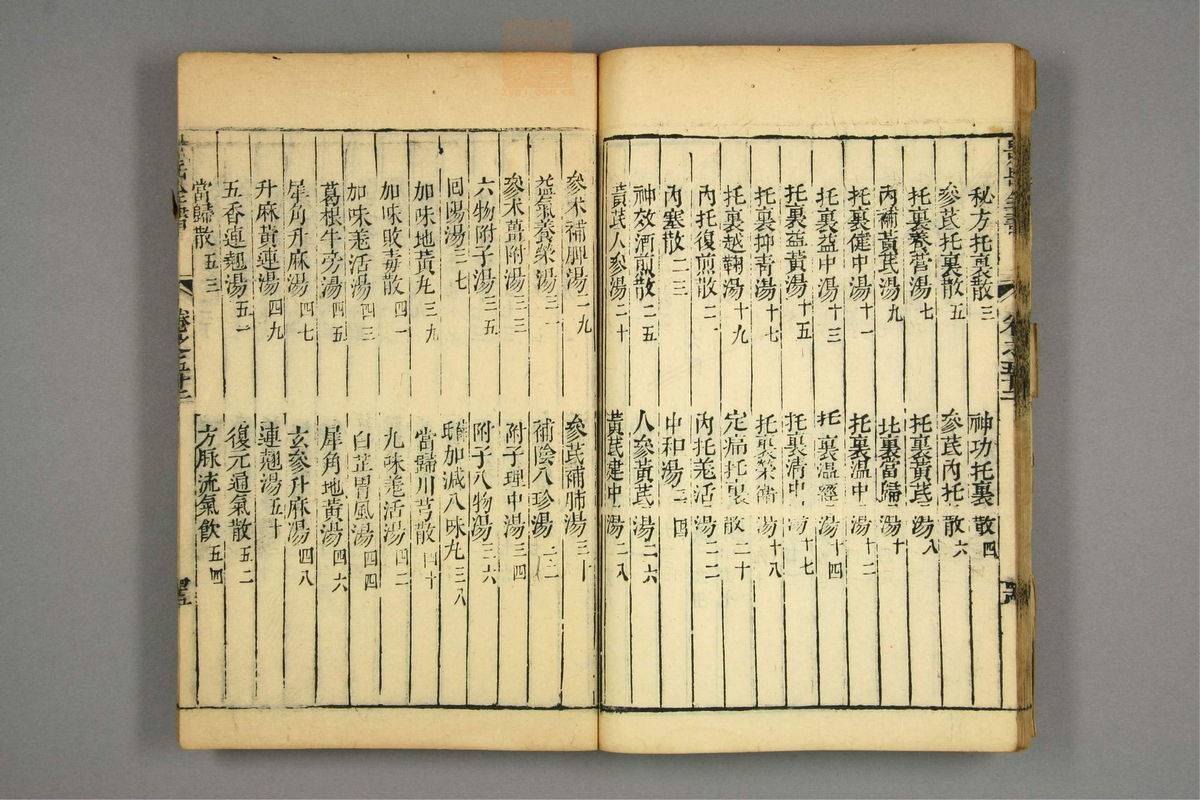 秘方托裏散三　神功托裏散四
參芪托裏散五　參芪內托散六
托裏養營湯七　托裏黃芪湯八
內補黃芪湯九　裏當歸湯十
托裏健中湯十一　托裏溫中湯十二
托裏益中湯十三　托裏溫經湯十四
托裏益黃湯十五　托裏清中湯十七
托裏抑青湯十七　托裏榮衛湯十八
托裏越鞠湯十九　定痛托裏散二十
內托復煎散二一　內托羗活湯二二
內塞散二三　中和湯二四
神效酒煎散二五　人參黃芪湯二六
黃芪人參湯二十　黃芪建中湯二八
參朮補脾湯二九　參芪補肺湯三十
益氣養榮湯三一　補陰八珍湯三二
參朮薑附湯三三　附子理中湯三四
六物附子湯三五　附子八物湯三六
回陽湯三七　加減八味丸三八
加味地黃丸三九　當歸川芎散四十
加味敗毒散四一　九味羗活湯四二
加味羗活湯四三　白芷胃風湯四四
葛根牛旁湯四五　犀角地黃湯四六
犀角升麻湯四七　玄參升麻湯四八
升麻黃連湯四九　連翹湯五十
五香連翹湯五一　復元通氣散五二
當歸散五三　方脉流氣飲五四
卷之五十二